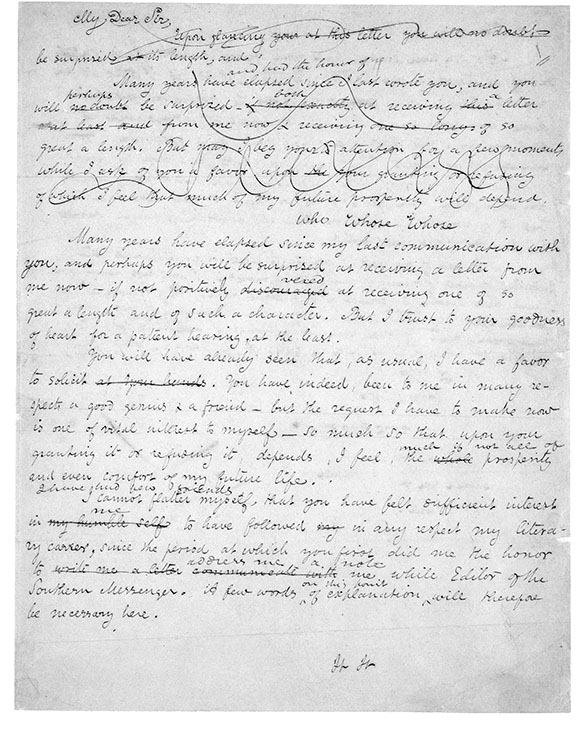 My Dear Sir,
Upon glancing your at this letter you will no doubt
be surprised at its length, and
and had the honor of
Many years have elapsed since I last wrote you, and you
perhaps both
will no doubt be surprised - if not at receiving this a letter
at least and from me now & receiving one so long of so
great a length. But may I beg your attention for a few moments
while I ask of you a favor upon the your granting or refusing
of which I feel that much of my future prosperity will depend.
who Whose Whose
Many years have elapsed since my last communication with
you, and perhaps you will be surprised at receiving a letter from
vexed
me now - if not positively discouraged at receiving one of so
great a length and of such a character. But I trust to your goodness
of heart for a patient hearing, at the least.
You will have already seen that, as usual, I have a favor
to solicit at your hands. You have, indeed, been to me in many re-
spects a good genius & a friend - but the request I have to make now
is one of vital interest to myself - so much so that upon your
much if not all of
granting it or refusing it, depends, I feel, the whole prosperity
and even comfort of my future life.
I have had few friends
I cannot flatter myself that you have felt sufficient interest
me
in my humble self to have followed my in any respect my litera-
ry career, since the period at which you first did me the honor
address me a note
to write me a letter communicate with me while Editor of the
on this point
Southern Messenger. A few words of explanation will therefore
be necessary here.
It It